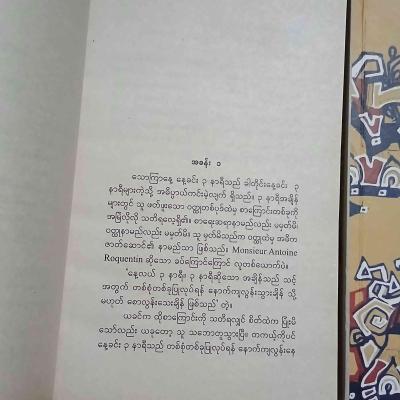 အခန်း ၁
သောကြာနေ့ နေ့ခင်း ၃ နာရီသည် ခါတိုင်းနေ့ခင်း ၃
နာရီများကဲ့သို့ အဓိပ္ပာယ်ကင်းမဲ့လျက် ရှိသည်။ ၃ နာရီအချိန်
များတွင် သူ ဖတ်ဖူးသော ဝတ္ထုတစ်ပုဒ်ထဲမှ စာကြောင်းတစ်ခုကို
အမြဲလိုလို သတိရလေ့ရှိ၏။ စာရေးဆရာနာမည်လည်း မမှတ်မိ၊
ဝတ္ထုနာမည်လည်း မမှတ်မိ။ သူ မှတ်မိသည်က ဝတ္ထုထဲမှ အဓိက
ဇာတ်ဆောင်၏ နာမည်သာ ဖြစ်သည်။ Monsieur Antoine
Roquentin ဆိုသော ခပ်ကြောင်ကြောင် လူတစ်ယောက်ပဲ။
'နေ့လယ် ၃ နာရီ။ ၃ နာရီဆိုသော အချိန်သည် သင့်
အတွက် တစ်စုံတစ်ခုပြုလုပ်ရန် နောက်ကျလွန်းသွားချိန် သို့
မဟုတ် စောလွန်းသေးချိန် ဖြစ်သည်' တဲ့။
ယခင်က ထိုစာကြောင်းကို သတိရလျှင် စိတ်ထဲက ပြုံးမိ
သော်လည်း ယခုတော့ သူ သဘောတူသွားပြီ။ တကယ့်ကိုပင်
နေ့ခင်း ၃ နာရီသည် တစ်စုံတစ်ခုပြုလုပ်ရန် နောက်ကျလွန်းနေ